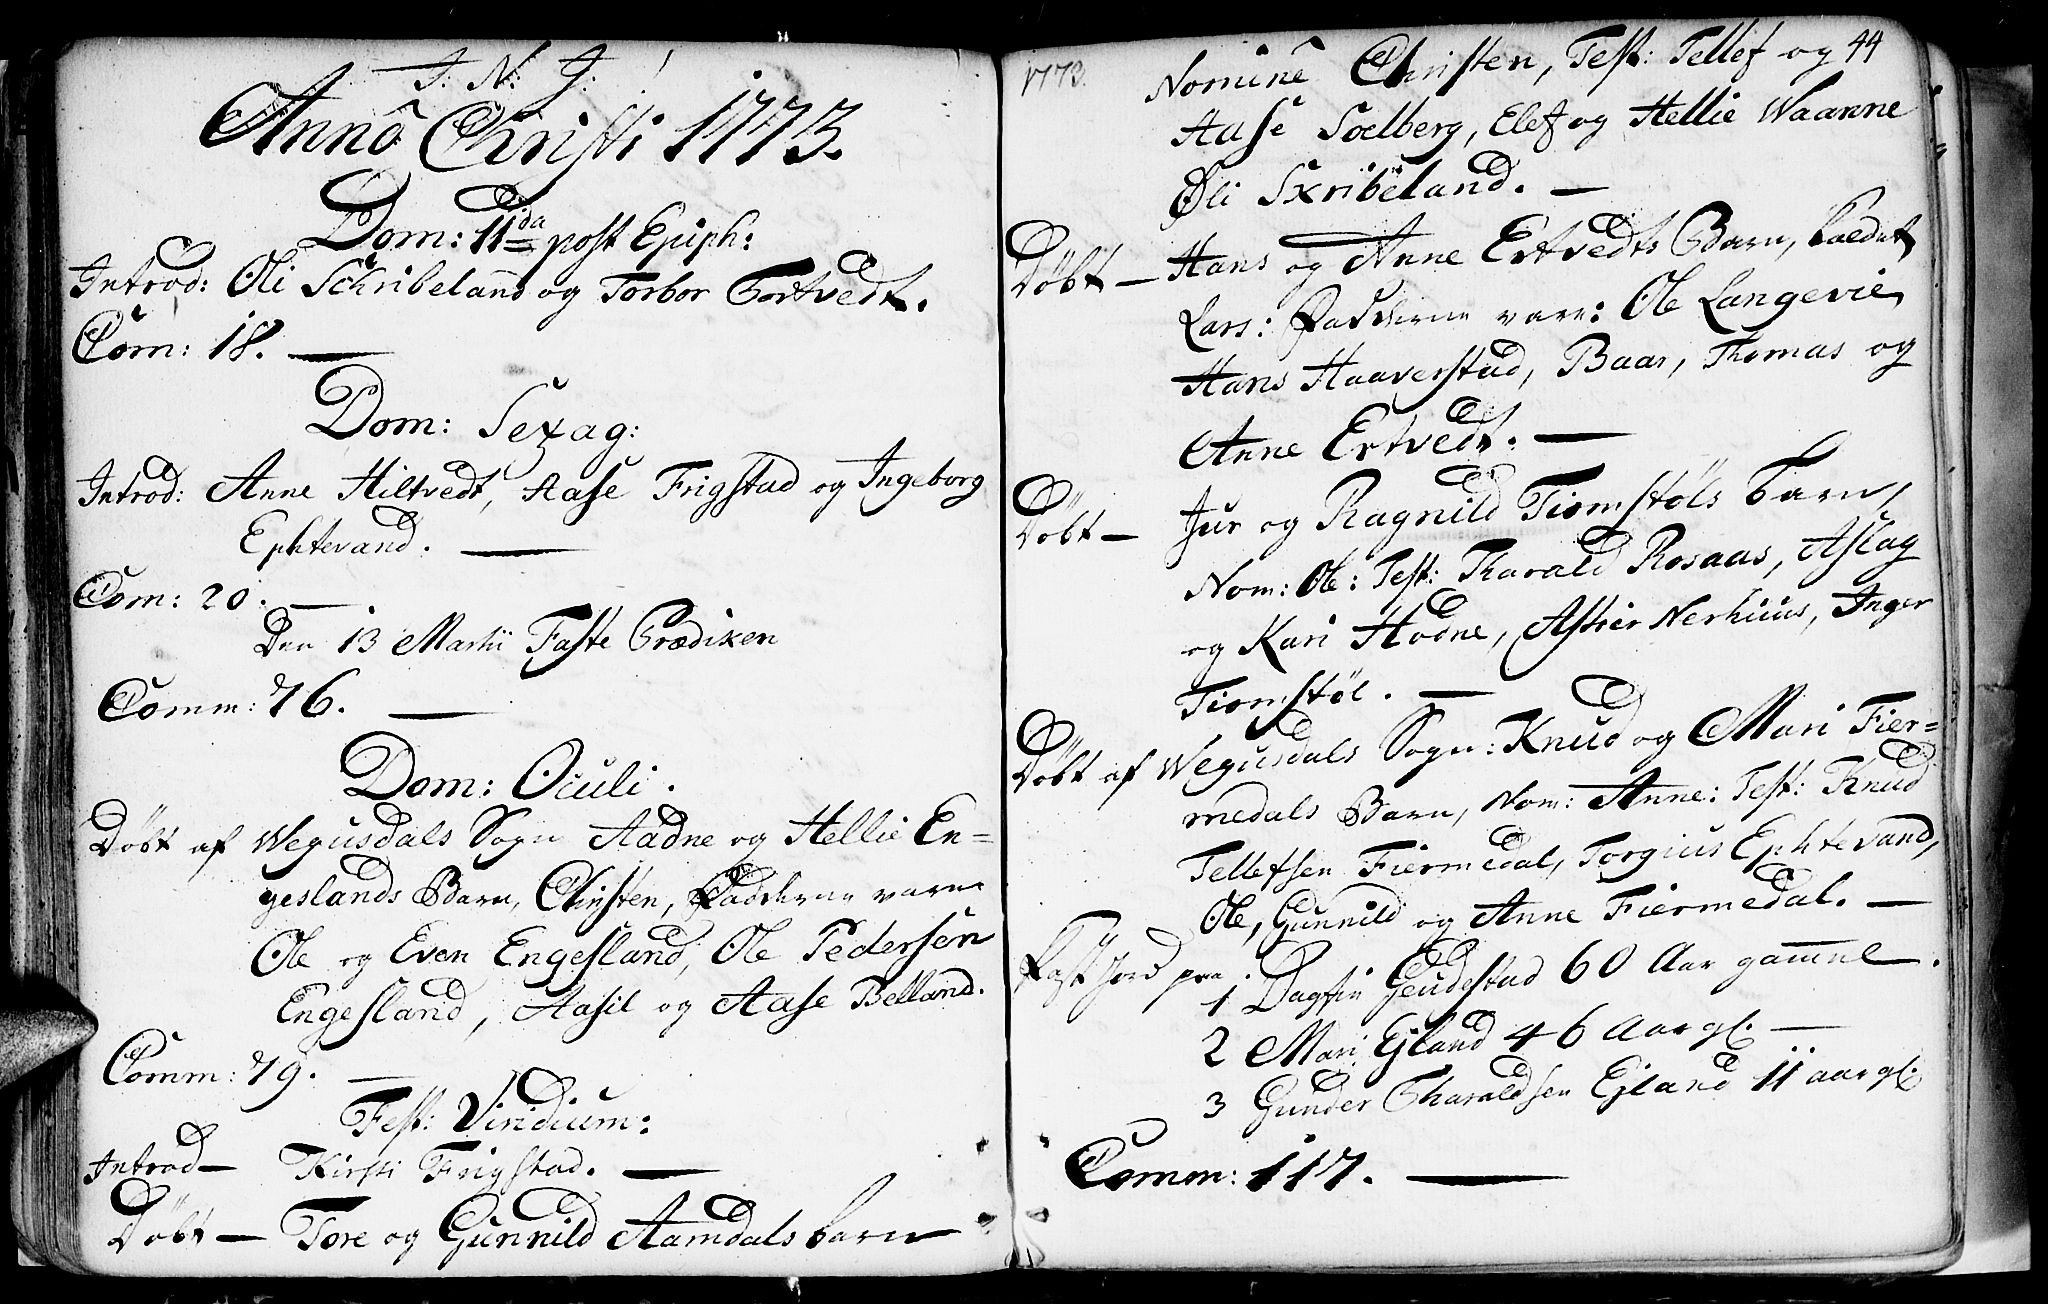 J: N: J:
Anno Christi 1773.
Dom: 11da post Epiph:
Introd: Oli Schribeland og Torbor Tortvedt.
Com: 18. —
Dom: Sexag:
Introd: Anne Hiltvedt, Aase Frigstad og Ingeborg
Ephtevand. —
Com: 20. —
Den 13 Martii Faste Prædiken
Comm: 76. —
Dom: Oculi.
Döbt af Wegusdals Sogn Aadne og Hellie En=
geslands Barn, Christen, Fadderne vare
Ole og Even Engesland, Ole Pedersen
Engesland, Aasil og Aase Belland.
Comm: 79. —
Fest: Viridium:
Introd — Kirsti Frigstad. —
Döbt — Tore og Gunnild Aamdals barn
1773.
Nomine Christen, Test: Tellef og 44
Aase Soelberg, Elef og Hellie Waanne
Øli Skribeland. —
Döbt — Hans og Anne Ertvedts Barn, kaldet
Lars: Fadderne vare: Ole Langevie,
Hans Haaverstad, Baar, Thomas og
Anne Ertvedt. —
Döbt — Jur og Ragnild Tiomstöls barn,
Nom: Ole: Test: Tharald Rosaas, Aslag
og Kari Hodne, Astier Nerhuus, Inger
Tiomstöl. —
Döbt af Wegusdals Sogn: Knud og Mari Fier=
medals Barn, Nom: Anne: Test: Knud
Tellefsen Fiermedal, Torgius Ephtevand,
Ole, Gunnild og Anne Fiermedal. —
Kast Jord paa:
1 Dagfin Geudestad 60 Aar gamel.
2 Mari Ejland 46 Aar gl. —
3 Gunder Tharaldsen Ejland 11 aar gl:
Comm: 117. —